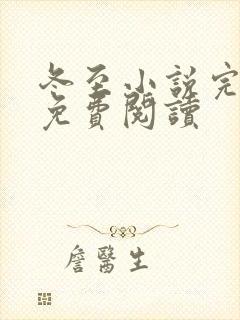 冬至小說完
免費閱讀
詹醫生